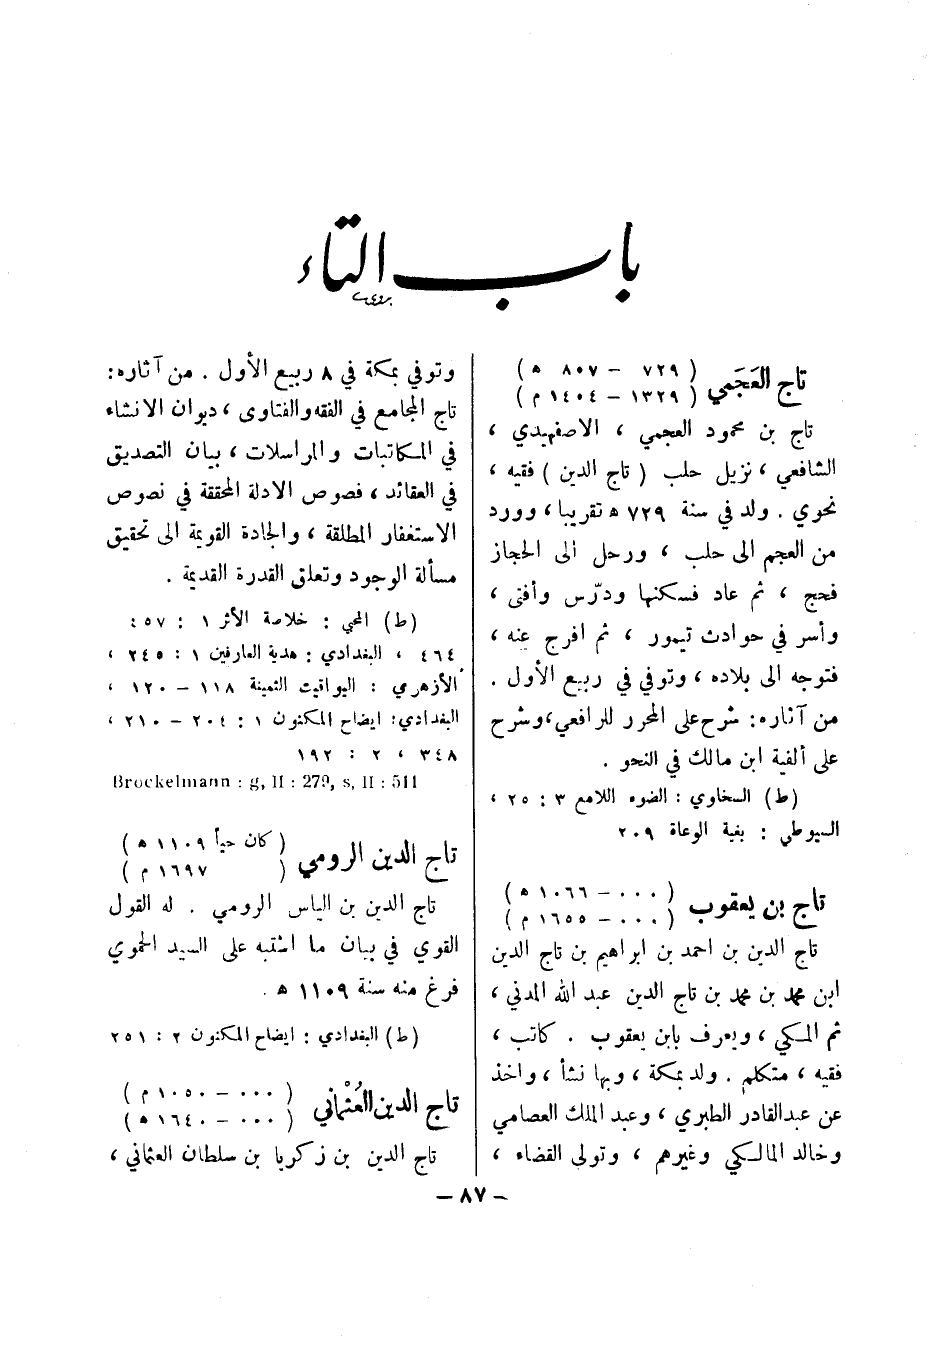 باب التاء
تاج العَجَمي
( ٧٢٩ – ٨٠٧ ه )
( ١٣٢٩ – ١٤٠٤ م )
تاج بن محمود العجمي ، الاصفهيدي ،
الشافعي ، نزيل حلب ( تاج الدين ) فقيه ،
نحوي . ولد في سنة ٧٢٩ ه تقريبا ، وورد
من العجم الى حلب ، ورحل الى الحجاز
فحج ، ثم عاد فسكنها ودرّس وأفتى ،
وأسر في حوادث تيمور ، ثم افرج عنه ،
فتوجه الى بلاده ، وتوفي في ربيع الأول .
من آثاره: شرح على المحرر للرافعي ، وشرح
على ألفية ابن مالك في النحو .
(ط) السخاوي : الضوء اللامع ٣ : ٢٥ ،
السيوطي : بغية الوعاة ٢٠٩
تاج بن يعقوب
( ٠٠٠ – ١٠٦٦ ه )
( ٠٠٠ – ١٦٥٥ م )
تاج الدين بن احمد بن ابراهيم بن تاج الدين
ابن محمد بن محمد بن تاج الدين عبد الله المدني ،
ثم المكي ، ويعرف بابن يعقوب . كاتب ،
فقيه ، متكلم . ولد بمكة ، وبها نشأ ، واخذ
عن عبدالقادر الطبري ، وعبد الملك العصامي
وخالد المالكي وغيرهم ، وتولى القضاء ،
وتوفي بمكة في ٨ ربيع الأول . من آثاره:
تاج المجامع في الفقه والفتاوى ، ديوان الانشاء
في المكاتبات والمراسلات ، بيان التصديق
في العقائد ، فصوص الادلة المحققة في نصوص
الاستغفار المطلقة ، والجادة القويمة الى تحقيق
مسألة الوجود وتعلق القدرة القديمة .
(ط) المحبي : خلاصة الأثر ١ : ٤٥٧
٤٦٤ ، البغدادي : هدية العارفين ١ : ٢٤٥ ،
الأزهري : اليواقيت الثمينة ١١٨ – ١٢٠ ،
البغدادي: ايضاح المكنون ١ : ٢٠٤ – ٢١٠ ،
٣٤٨ ، ٢ : ١٩٢
Brockelmann : g, II : 279, s, II : 511
تاج الدين الرومي
( كان حياً ١١٠٩ ه )
( ١٦٩٧ م )
تاج الدين بن الياس الرومي . له القول
القوي في بيان ما اشتبه على السيد الحموي
فرغ منه سنة ١١٠٩ ه .
(ط) البغدادي : ايضاح المكنون ٢ : ٢٥١
تاج الدين العُثْماني
( ٠٠٠ – ١٠٥٠ م )
( ٠٠٠ – ١٦٤٠ ه )
تاج الدين بن زكريا بن سلطان العثماني ،
– ٨٧ –